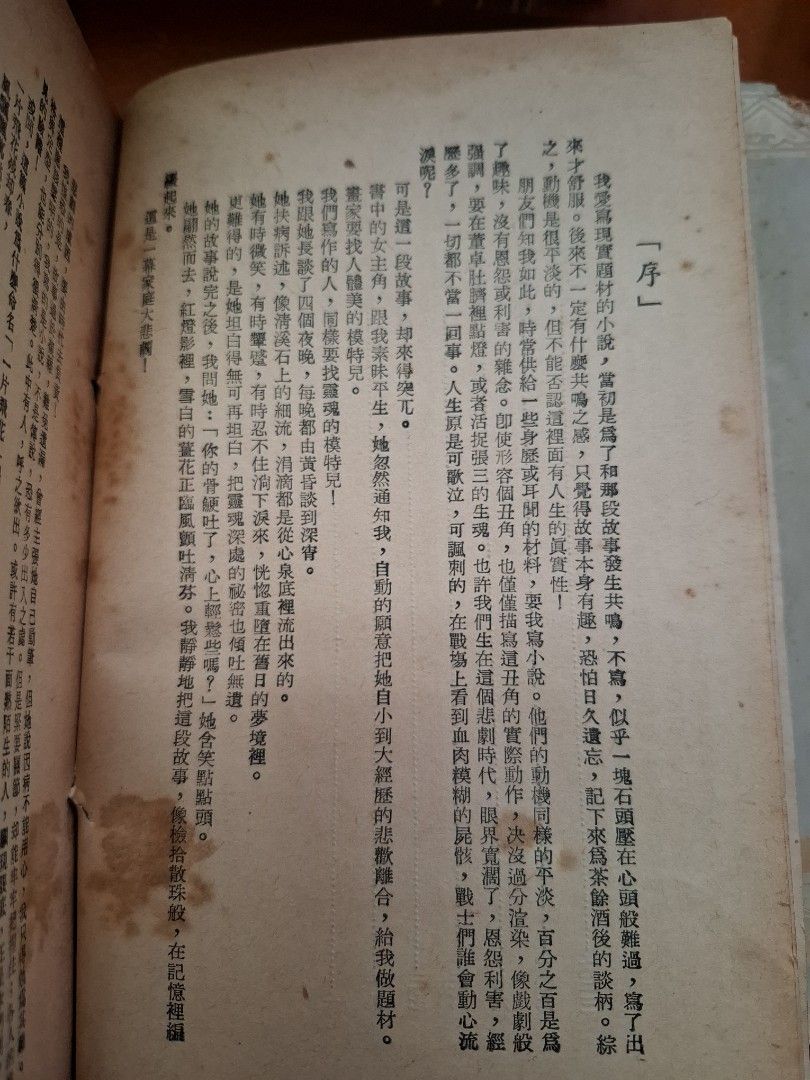 「序」
我愛寫現實題材的小說，當初是爲了和那段故事發生共鳴，不寫，似乎一塊石頭壓在心頭般難過，寫了出
來才舒服。後來不一定有什麽共鳴之感，只覺得故事本身有趣，恐怕日久遺忘，記下來爲茶餘酒後的談柄。綜
之，動機是很平淡的，但不能否認這裡面有人生的眞實性！
朋友們知我如此，時常供給一些身歷或耳聞的材料，要我寫小說。他們的動機同樣的平淡，百分之百是爲
了趣味，沒有恩怨或利害的雜念。卽使形容個丑角，也僅僅描寫這丑角的實際動作，決沒過分渲染，像戲劇般
强調，要在董卓肚臍裡點燈，或者活捉張三的生魂。也許我們生在這個悲劇時代，眼界寬濶了，恩怨利害，經
歷多了，一切都不當一回事。人生原是可歌泣，可諷刺的，在戰塲上看到血肉糢糊的屍骸，戰士們誰會動心流
淚呢？
可是這一段故事，却來得突兀。
書中的女主角，跟我素昧平生，她忽然通知我，自動的願意把她自小到大經歷的悲歡離合，給我做題材。
畫家要找人體美的模特兒。
我們寫作的人，同樣要找靈魂的模特兒！
我跟她長談了四個夜晚，每晚都由黃昏談到深宵。
她扶病訴述，像淸溪石上的細流，涓滴都是從心泉底裡流出來的。
她有時微笑，有時顰蹙，有時忍不住淌下淚來，恍惚重墮在舊日的夢境裡。
更難得的，是她坦白得無可再坦白，把靈魂深處的祕密也傾吐無遺。
她的故事說完之後，我問她：「你的骨鯁吐了，心上輕鬆些嗎？」她含笑點點頭。
她翩然而去，紅燈影裡，雪白的薑花正臨風顫吐淸芬。我靜靜地把這段故事，像檢拾散珠般，在記憶裡編
綴起來。
這是一幕家庭大悲劇！